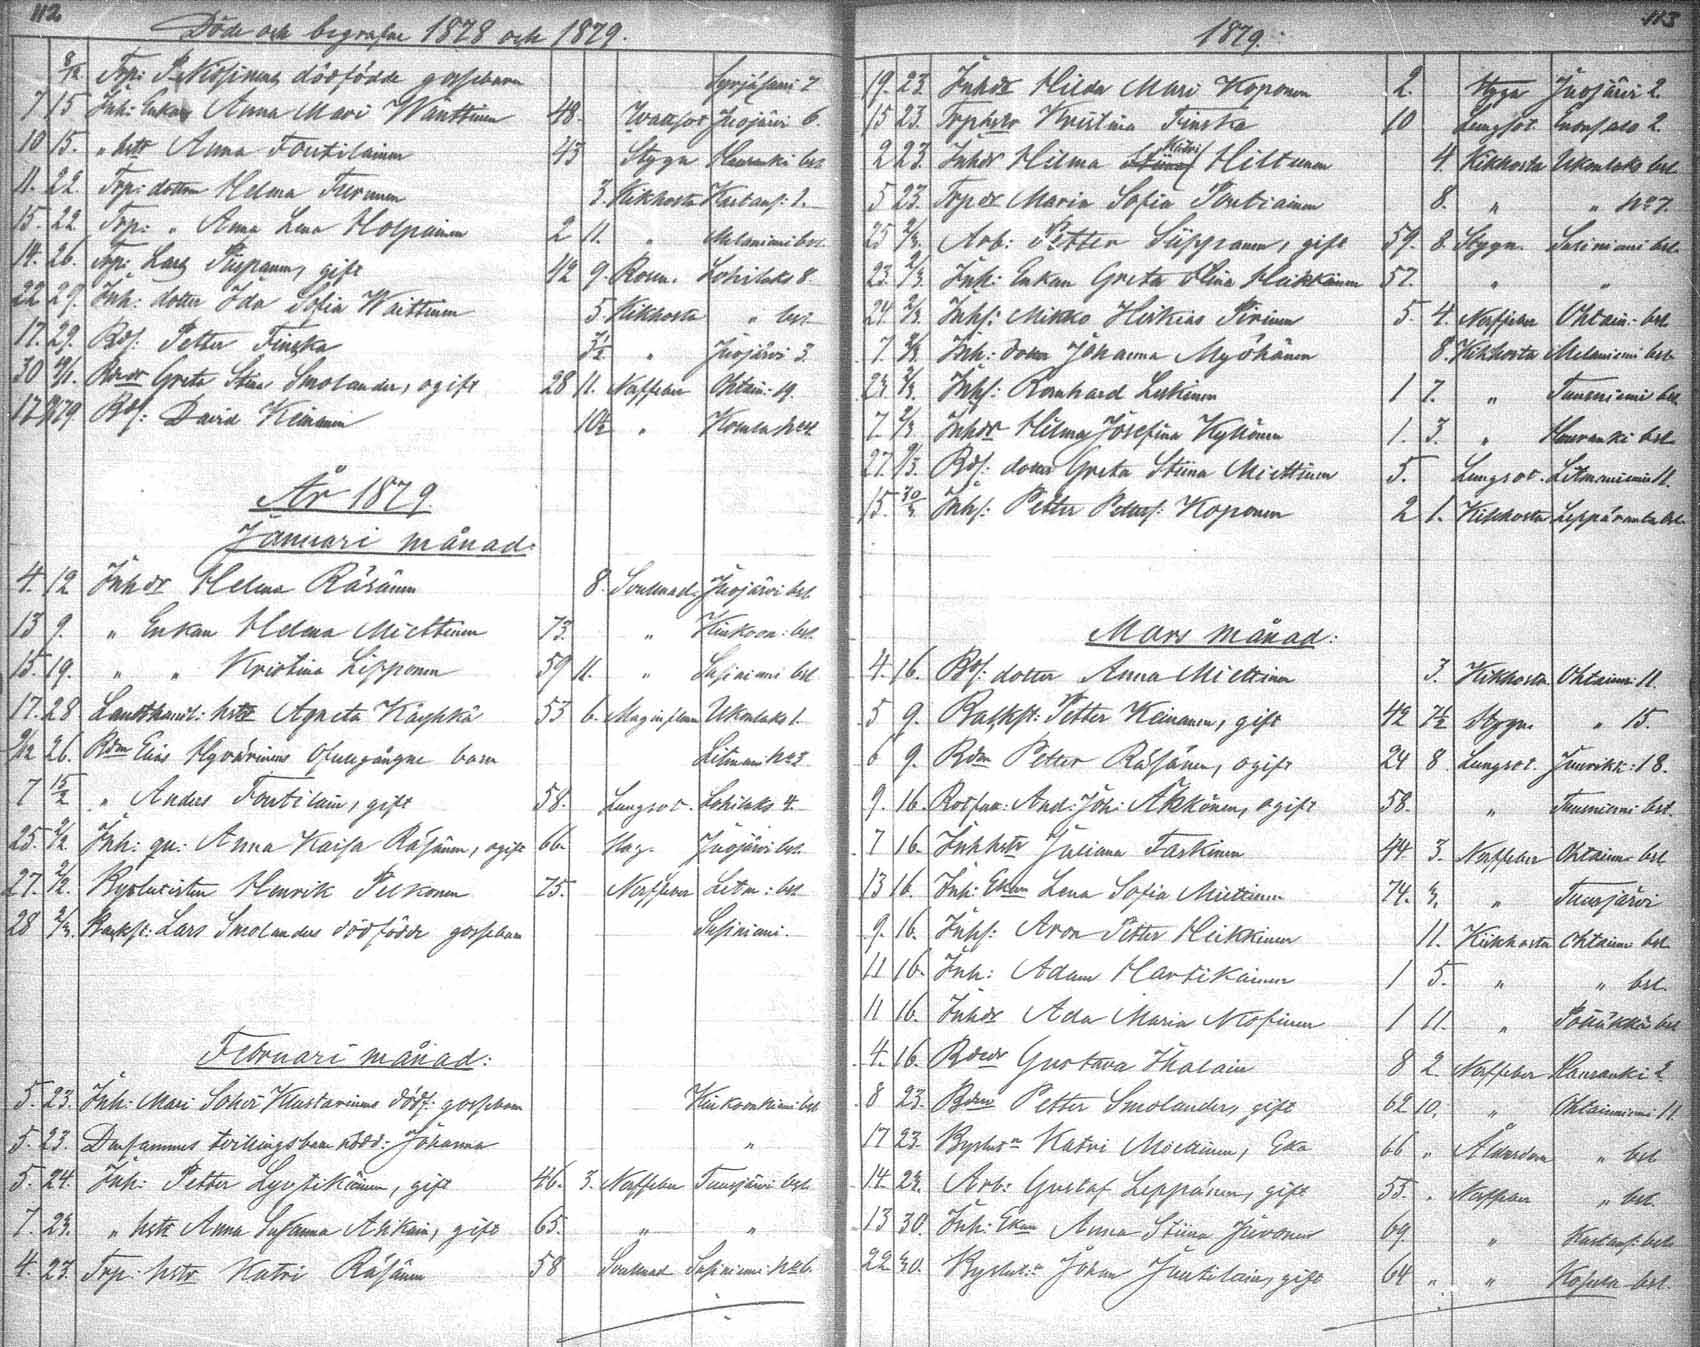 112
Döde och begrafne 1878 och 1879.
8/12 Torp: P. Nousiainens dödfödde gossebarn 2
7 15 Inh: Enkan Anna Mari Wänttinen 48. Wattsot Juojärvi 6.
10 15. " hstr Anna Tontilainen 43 Stygn Hauranki bst
11. 22 Torp: dottern Helma Turunen 3. Kikhosta Kartans: 1.
15. 22 Torp: " Anna Lena Holpainen 2 11. " Melaniemi bst.
14. 26. Torp: Lars Puspanen, gift 42 9. Rosen. Lohilaks 8.
22 29. Inh: dotter Ida Sofia Waittinen 5 Kikhosta " bst
17. 29. Bds: Petter Finska 3½ " Juojärvi 3.
30 Bdedr Greta Stina Smolander, ogift 28 11. Nerffeber Ohtain: 19.
17 79 Bds: David Keinänen 10½ "
År 1879.
Januari månad:
4. 12 Inhdr Helma Räsänen 8. Svullnad. Juojärvi bst.
13 9. " Enkan Helma Miettinen 73. " Kinkoon: bst.
15. 19. " " Kristina Lipponen 59 11. " Susiniemi bst
17. 28 Landthandl: hstr Agneta Käyhkö 53 6. Maginflam Ukonlaks 1.
26. Bdm Elias Hyvärinens barn Litmani No 3
7 15/2 " Anders Tontilain, gift 58. Lungsot. Lohilaks 4.
25. 2/2. Inh: qv: Anna Kaisa Räsänen, ogift 66. Hag. Juojärvi bst.
27. 2/2. Bysluristen Henrik Pelkonen 75. Nerffeber Litm: bst.
28 2/3. Backst: Lars Smolanders dödfödde gossebarn Susiniemi.
Februari månad:
5. 23. Inh: Mari Sohvi Kustarinens dödf: gossebarn Kinkooniemi bst
5. 23. Densammes tvillingsbarn nöddö: Johanna "
5. 24. Inh: Petter Lyytikäinen, gift 46. 3. Nerffeber Tuusjärvi bst.
7. 23. " hstr Anna Susanna Ahkain, gift 65. " "
4. 23. Torp: hstr Katri Räsänen 58 Svullnad Susiniemi No 6.
113
1879.
19. 23. Inhdr Hilda Mari Koponen 2. Stygn Juojärvi 2.
15 23. Torphstr Kristina Finska 10 Lungsot. Enonsalo 2.
2 23. Inhdr Hilma Mari Hiltunen 4. Kikhosta Ukonlaks bst.
5 23. Torpdr Maria Sofia Pontiainen 8. " " No 7.
25 2/3. Arb: Petter Süppanen, gift 59. 8. Stygn. Susiniemi bst.
23. 2/3. Inh: Enkan Greta Elina Heikkinen 57. " "
24. 2/3. Inhs: Mikko Heikias Pirinen 5. 4. Nerffeber Ohtain: bst
7. Inh: dottern Johanna Myöhänen 8. Kikhosta Melaniemi bst
23 2/3. Inhs: Bernhard Leskinen 1 7. " Tuusniemi bst.
7. 2/3. Inhdr Hilma Josefina Kyllönen 1. 3. " Hauranki bst
27. 9/3. Bds: dotter Greta Stiina Miettinen 5. Lungsot. Litmaniemi 11.
15. 30/3 Inhs: Petter Petters: Koponen 2 1. Kikhosta Leppäranta bst.
Mars månad:
4. 16. Bds: dotter Anna Miettinen 3. Kikhosta. Ohtainni 11.
5 9. Backst: Petter Keinanen, gift 42 7½ Stygn. " 15.
6 9. Bdm Petter Räsänen, ogift 24 8. Lungsot. Juurikk: 18.
9. 16. And: Joh: Akkänen, ogift 58. " Tuusniemi bst.
7 16. Inhhstr Juliana Taskinen 44 3. Nerffeber Ohtain: bst
13 16. Inh: Ekan Lena Sofia Miettinen 74. " Tuusjärvi
9. 16. Inhs: Aron Petter Heikkinen 11. Kikhosta Ohtain: bst.
11 16. Inh: Adam Hartikainen 1 5. " " bst.
11 16. Inhdr Ada Maria Nousinen 1 11. " Pölläkkä bst
4. 16. Bdedr Gustava Ihalain 8 2. Nerffeber Hauranki 2
8 23. Bdm Petter Smolander, gift 62 10. " Ohtainniemi 11.
17 23. Katri Miettinen, Eka 66 " Ålderdom " bst
14. 23. Arb: Gustaf Leppänen, gift 55. " Nerffeber " bst.
13 30. Inh: Ekan Anna Stiina Juvonen 69. " Kartans: bst
22 30. Johan Juutilain, gift 64 " " Kosula bst.